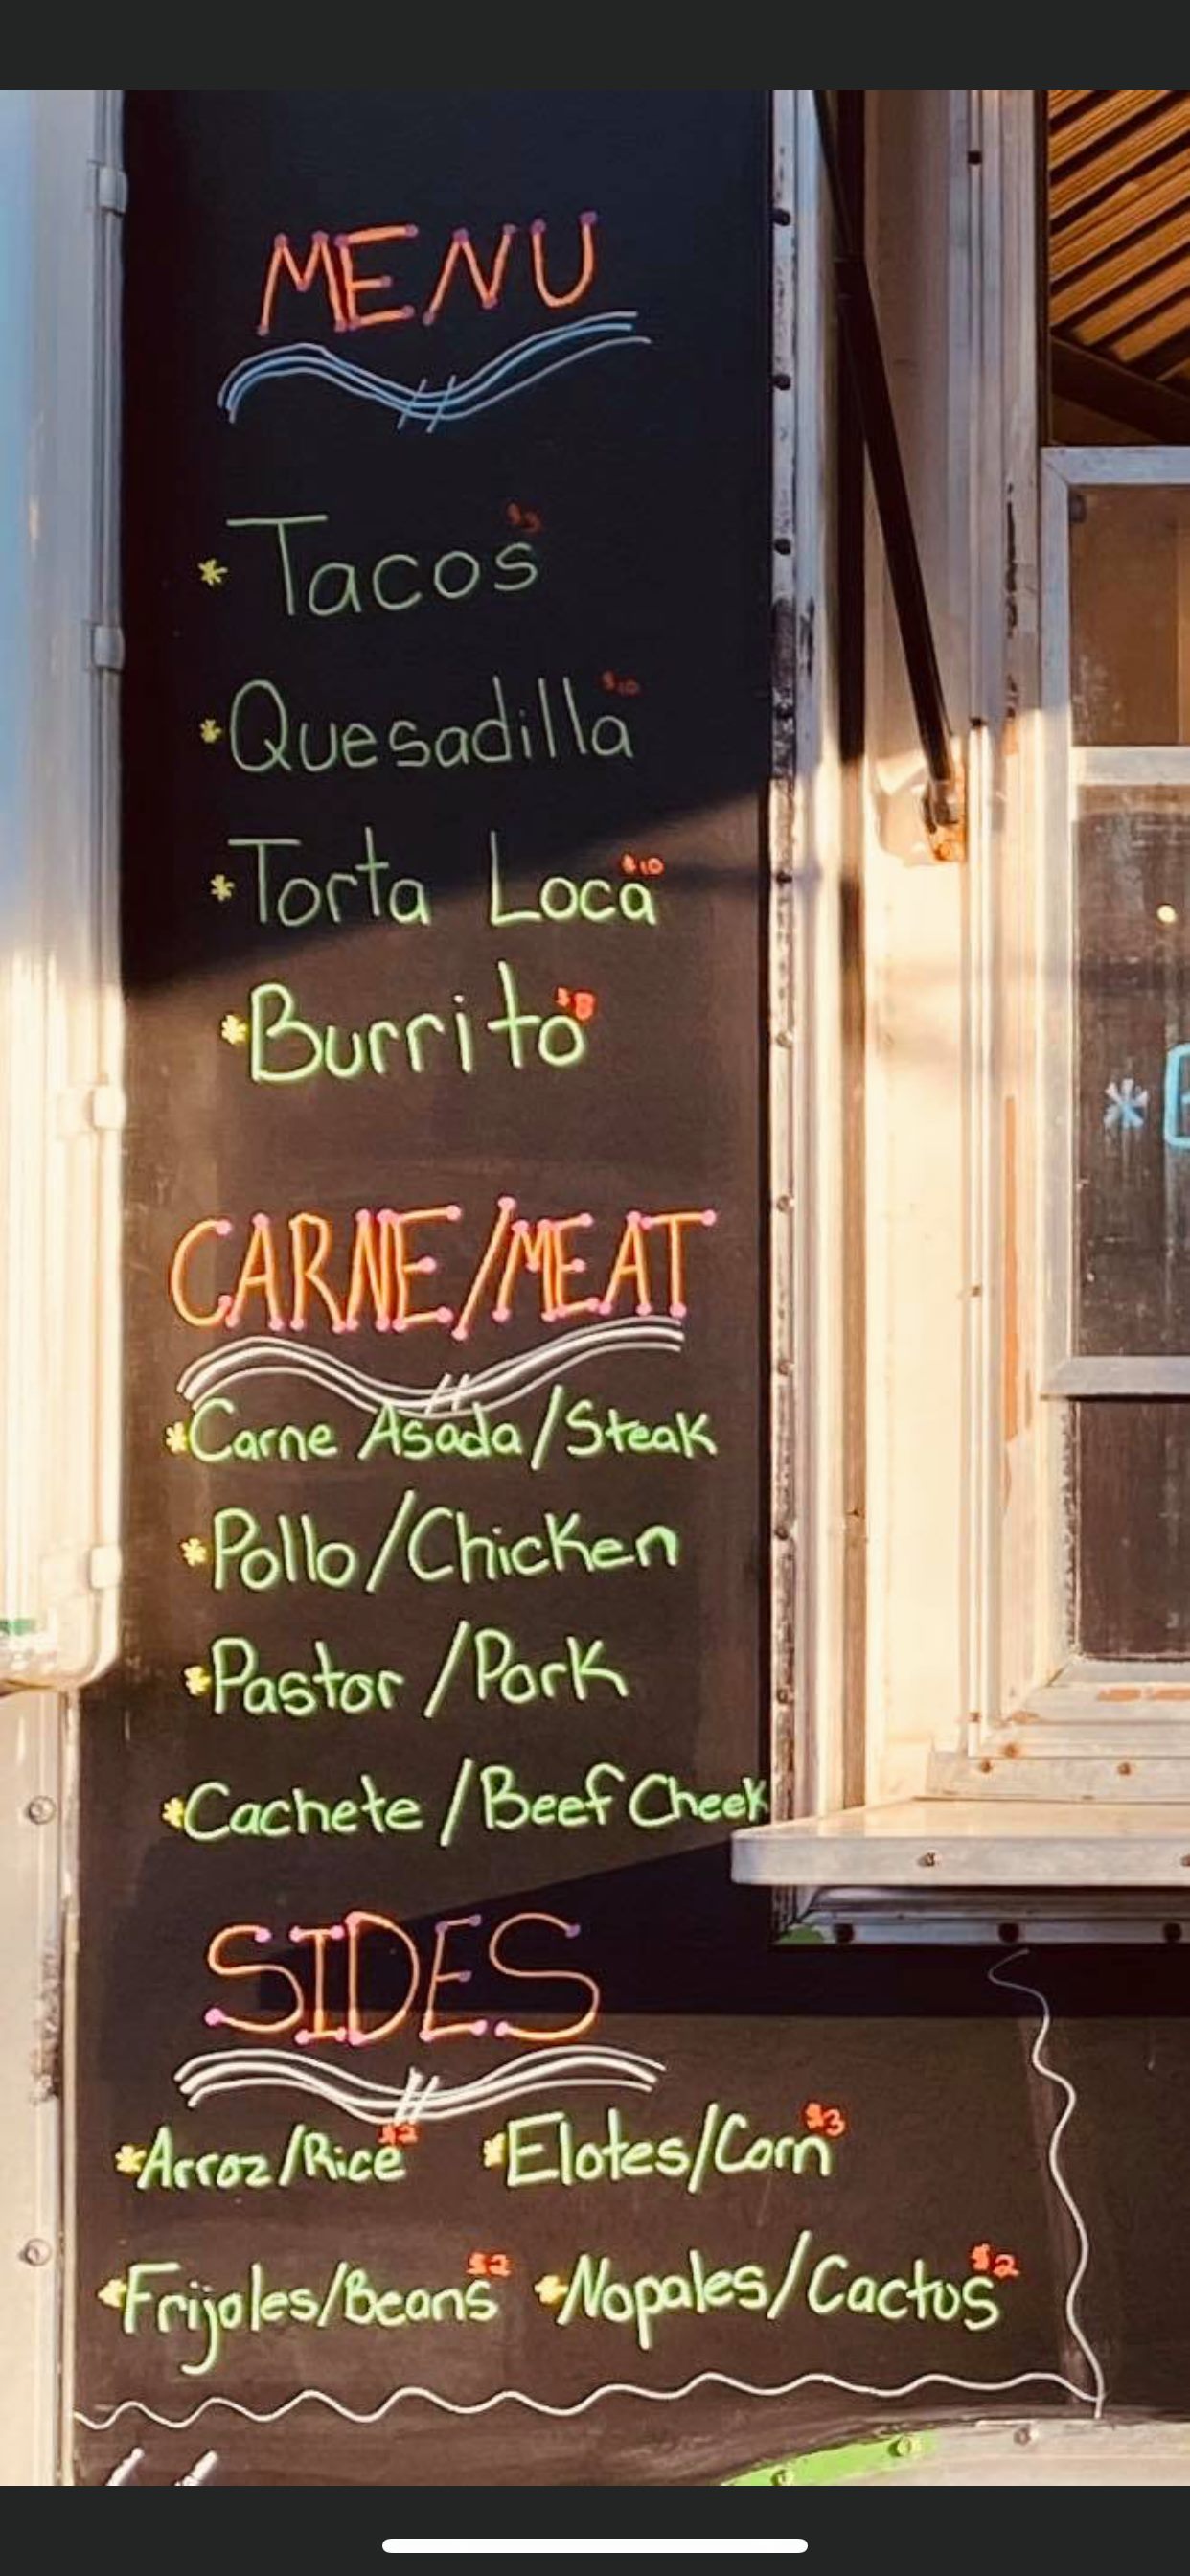 MENU
* Tacos
* Quesadilla $10
* Torta Loca $10
* Burrito $8
CARNE/MEAT
* Carne Asada/Steak
* Pollo/Chicken
* Pastor/Pork
* Cachete/Beef Cheek
SIDES
* Arroz/Rice $2 * Elotes/Corn $3
* Frijoles/Beans $2 * Nopales/Cactus $2